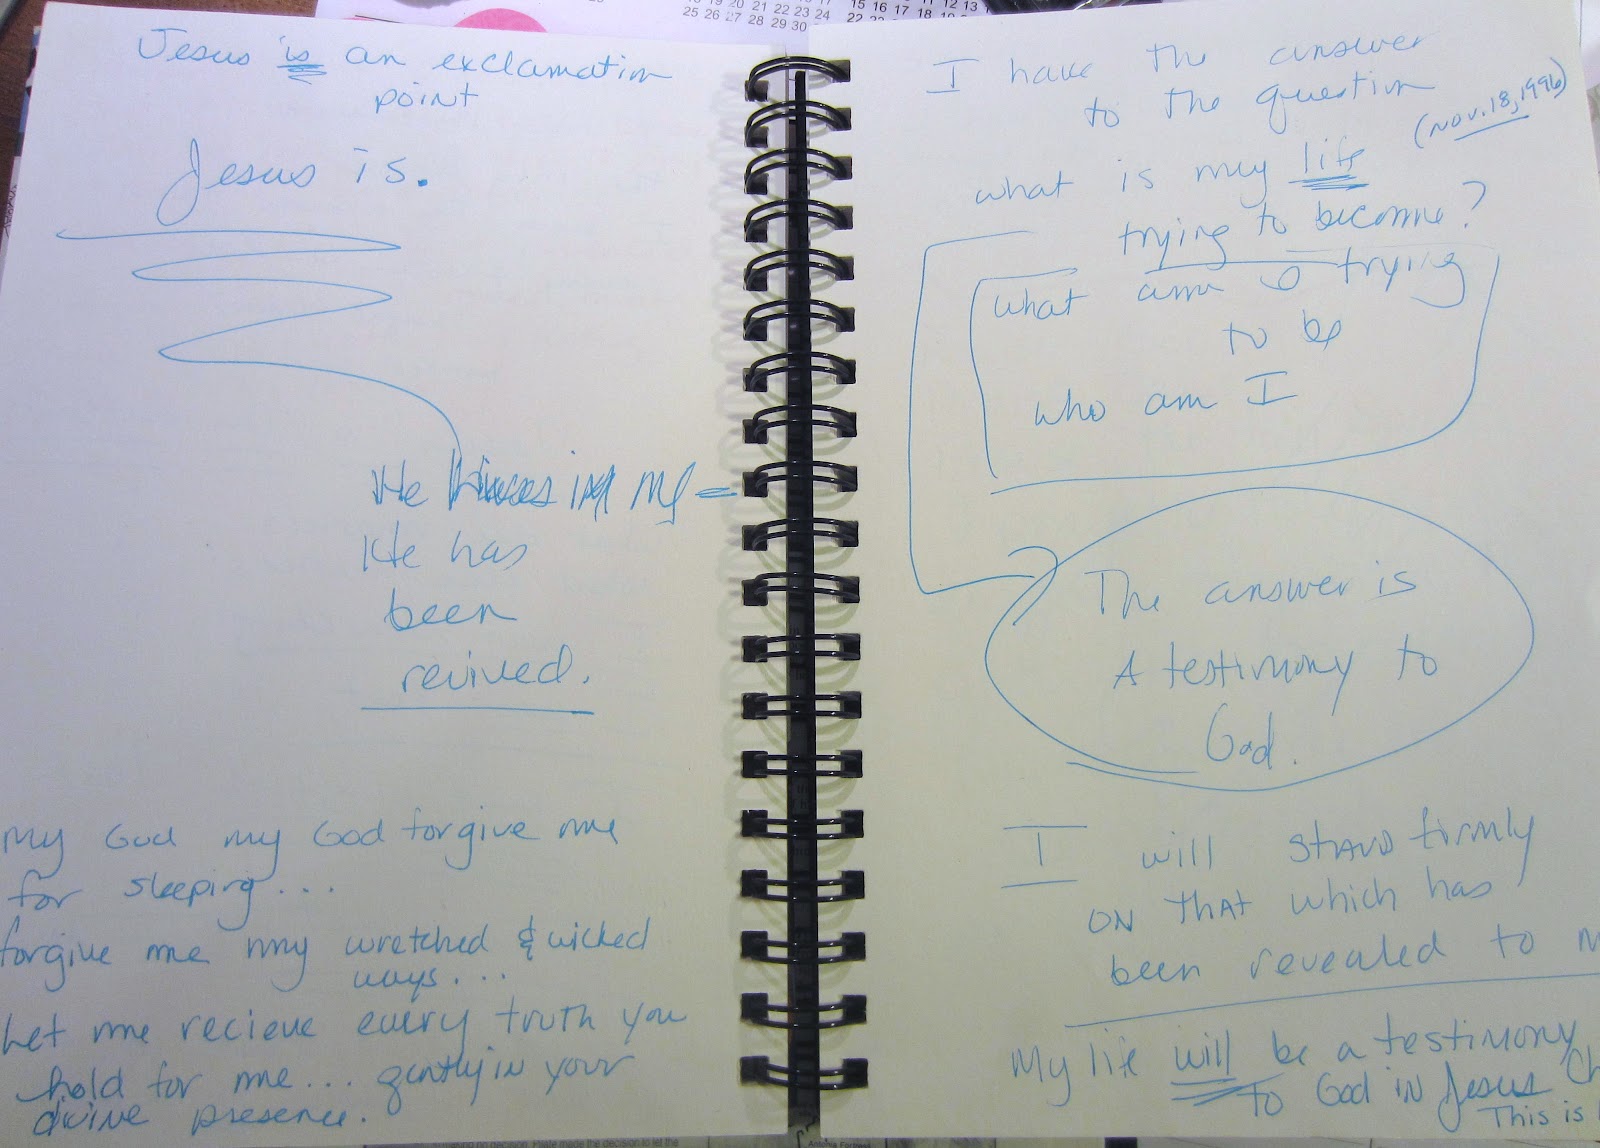 Jesus is an exclamation
point
Jesus is.
He in my =
He has
been
revived.
My God my God forgive me
for sleeping...
forgive me my wretched & wicked
ways...
Let me recieve every truth you
hold for me... gently in your
divine presence.
I have the answer
to the question
(Nov. 18, 1996)
what is my life
trying to become?
what am I trying
to be
who am I
The answer is
A testimony to
God.
I will stand firmly
ON THAT which has
been revealed to
My life will be a testimony
to God in Jesus Ch
This is
15 16 17
11 12 13 14
18 19 20 21 22 23 24
25 26 27 28 29 30